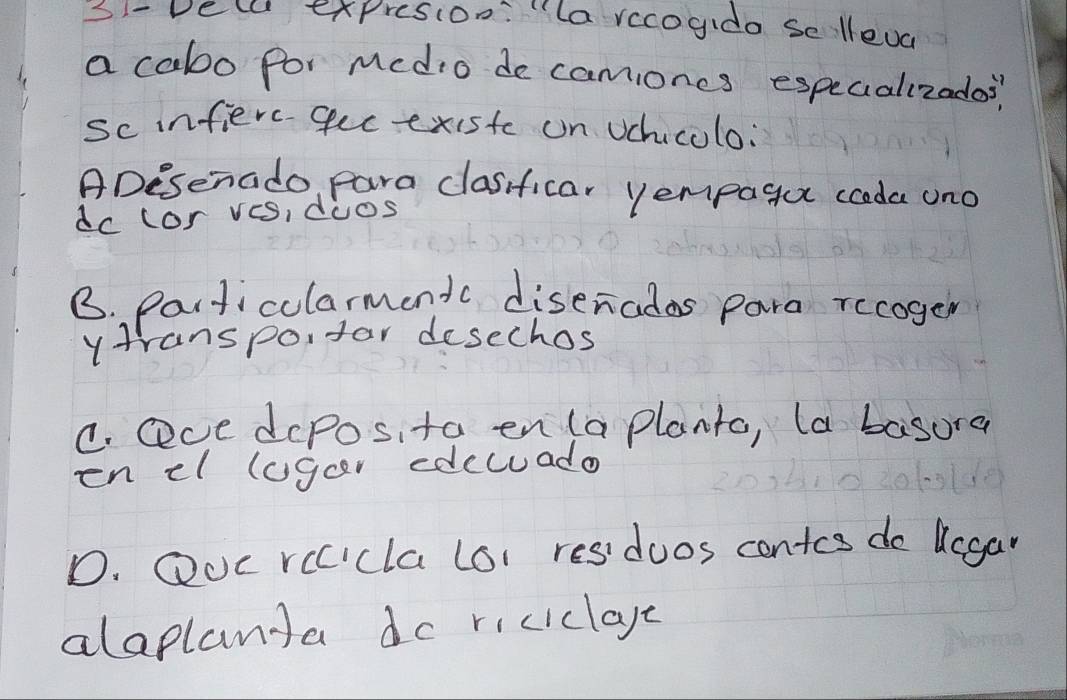 31- De la expresion: "la recogida se lleva
a cabo por medio de camiones especializados",
se infiere que existe un vehiculo:
A Diseñado para clasificar y empaqca cada uno
de los residuos
B. particularmente diseñados para recoger
y transportar desechos
C. Que deposita en la planta, la basura
en el lugar edecuado
D. Que recicla los residuos contes de llegar
a la planta de riciclaje
Norma